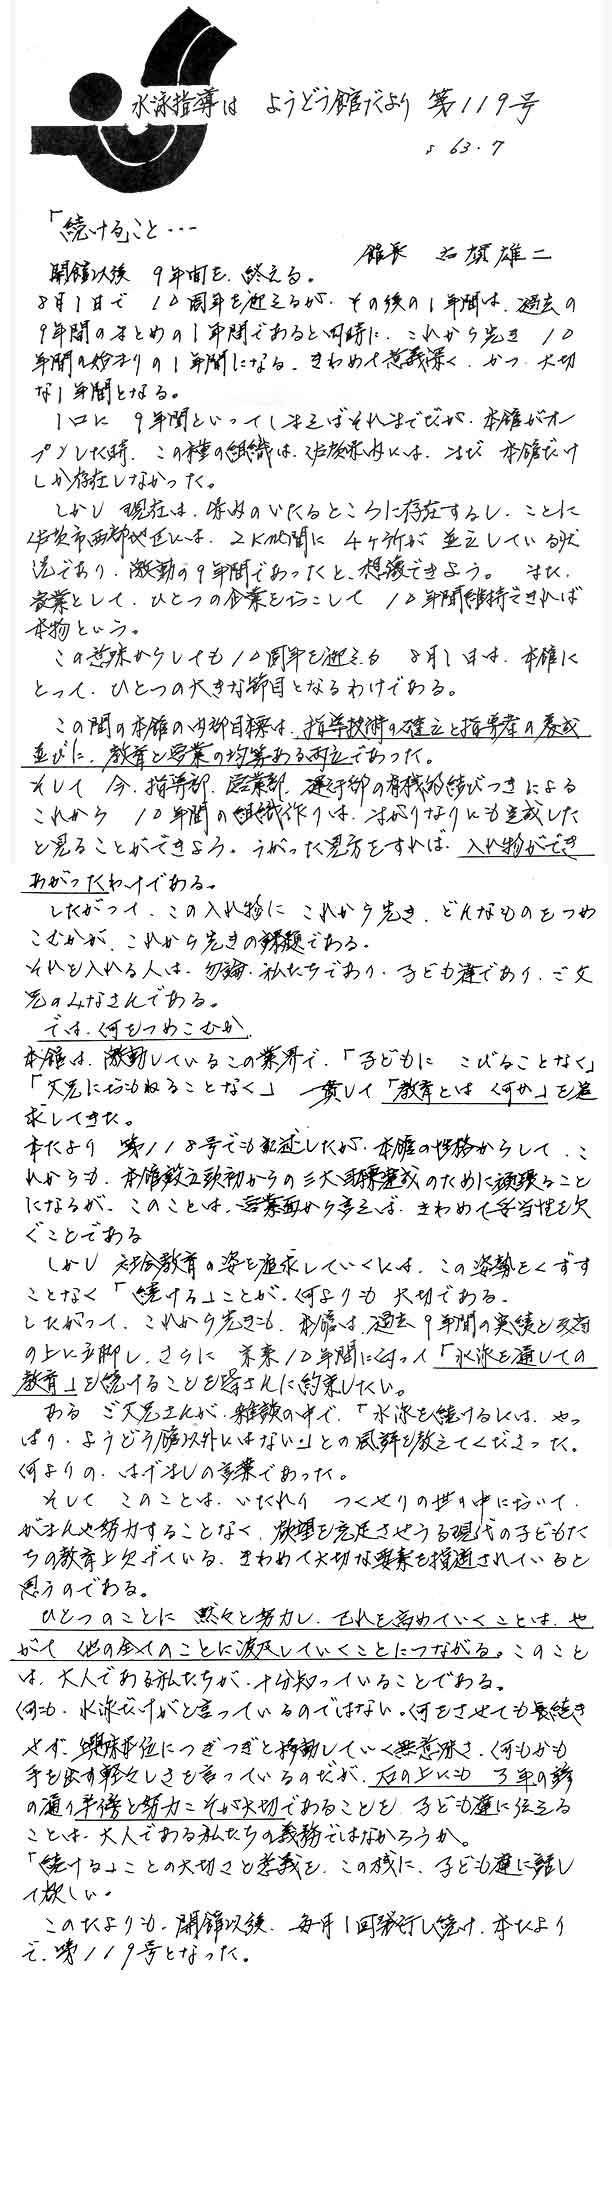 水泳指導は ようどう館だより 第119号
S 63.7
「続けること…
館長 古賀雄二
開館以後 9年間を 終える。
8月1日で 10周年を迎えるが、その後の1年間は、過去の
9年間のまとめの1年間であると同時に、これから先き 10
年間の始まりの1年間になる。きわめて意義深く、かつ、大切
な1年間となる。
1口に 9年間といってしまえばそれまでだが、本館がオー
プンした時、この種の組織は、佐賀県内には、まだ 本館だけ
しか存在しなかった。
しかし 現在は、県内のいたるところに存在するし、ことに
佐賀市西部地区には、2Km間に 4ヶ所が 並立している状
況であり、激動の9年間であったと、想像できよう。 また、
営業として、ひとつの企業をおこして 10年間維持できれば
本物という。
この意味からしても10周年を迎える 8月1日は、本館に
とって、ひとつの大きな節目となるわけである。
この間の本館の内部目標は、指導技術の確立と指導者の養成
並びに、教育と営業の均等ある両立であった。
そして 今、指導部、営業部、運行部の有機的結びつきによる
これから 10年間の組織作りは、まがりなりにも完成した
と見ることができよう。うがった見方をすれば、入れ物ができ
あがったわけである。
したがって、この入れ物に これから先き、どんなものをつめ
こむかが、これから先きの課題である。
それを入れる人は、勿論、私たちであり、子ども達であり、ご父
兄のみなさんである。
では、何をつめこむか
本館は、激動しているこの業界で、「子どもに こびることなく」
「父兄におもねることなく」 一貫して「教育とは 何か」を追
求してきた。
本だより 第118号でも記述したが、本館の性格からして、こ
れからも、本館設立当初からの三大目標達成のために頑張ること
になるが、このことは、営業面から言えば、きわめて妥当性を欠
ぐことである
しかし 社会教育の姿を追求していくには、この姿勢をくずす
ことなく「続ける」ことが、何よりも 大切である。
したがって、これから先きも、本館は、過去 9年間の実績と反省
の上に立脚し、さらに 未来10年間に向って「水泳を通しての
教育」を続けることを皆さんに約束したい。
ある ご父兄さんが、雑談の中で、「水泳を続けるには、やっ
ぱり、ようどう館以外にはない。」との風評を教えてくださった。
何よりの、はげましの言葉であった。
そして このことは、いたれり つくせりの世の中において、
がまんや努力することなく、欲望を充足させうる現代の子どもた
ちの教育上欠げている、きわめて大切な要素を指適されていると
思うのである。
ひとつのことに 黙々と努力し、それを高めていくことは、や
がて 他の全てのことに波及していくことにつながる。このこと
は、大人である私たちが、十分知っていることである。
何も、水泳だけがと言っているのではない。何をさせても長続き
せず、興味本位につぎつぎと移動していく無意味さ、何もかも
手を出す軽々しさを言っているのだが、石の上にも 3年の諺
の通り辛棒と努力こそが大切であることを、子ども達に伝える
ことは、大人である私たちの義務ではなかろうか。
「続ける」ことの大切さと意義を、この機に、子ども達に話し
て欲しい。
このたよりも、開館以後、毎月1回発行し続け、本だより
で、第119号となった。